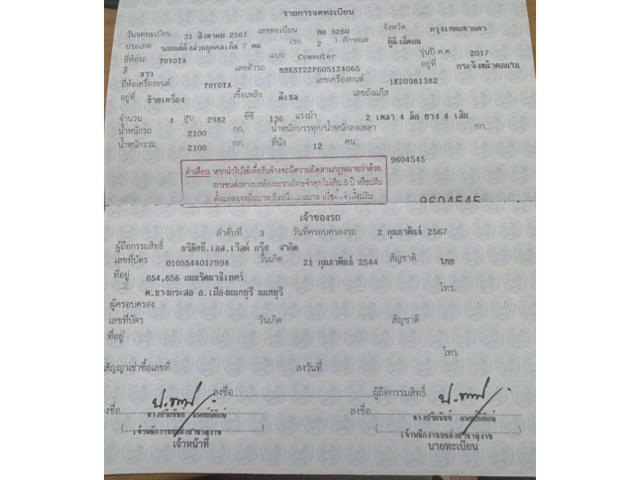 รายการจดทะเบียน
วันจดทะเบียน 31 สิงหาคม 2561 เลขทะเบียน 3260 จังหวัด กรุงเทพมหานคร
ประเภท รถยนต์นั่งส่วนบุคคลเกิน 7 คน (รย. 2 ) ลักษณะ
ยี่ห้อรถ TOYOTA แบบ Commuter รุ่นปี ค.ศ. 2017
สี ขาว เลขตัวรถ MMKST22P605124065 อยู่ที่
ยี่ห้อเครื่องยนต์ TOYOTA เลขเครื่องยนต์ 1KDU981382
อยู่ที่ ซ้ายเครื่อง เชื้อเพลิง ดีเซล เลขถังแก๊ส
จำนวน 4 สูบ 2982 ซีซี 136 แรงม้า 2 เพลา 4 ล้อ ยาง 4 เส้น
น้ำหนักรถ 2100 กก. น้ำหนักบรรทุก/น้ำหนักลงเพลา กก.
น้ำหนักรวม 2100 กก. ที่นั่ง 12 คน
9604545
คำเตือน หากนำไปใช้เพื่อรับจ้างจะมีความผิดตามกฎหมายว่าด้วย
การขนส่งทางบกต้องระวางโทษจำคุกไม่เกิน 5 ปี หรือปรับ
ตั้งแต่สองหมื่นบาท ถึงหนึ่งแสนบาท หรือทั้งจำทั้งปรับ
9604545
เจ้าของรถ
ลำดับที่ 3 วันที่ครอบครองรถ 2 กุมภาพันธ์ 2567
ผู้ถือกรรมสิทธิ์ จำกัด
เลขที่บัตร 0105544017998 วันเกิด 21 กุมภาพันธ์ 2544 สัญชาติ ไทย
ที่อยู่ 654,656 ถนนรัตนาธิเบศร์
ต.บางกระสอ อ.เมืองนนทบุรี นนทบุรี โทร.
ผู้ครอบครอง
เลขที่บัตร วันเกิด สัญชาติ
ที่อยู่
โทร.
สัญญาเช่าซื้อเลขที่ ลงวันที่
ลงชื่อ ผู้ถือกรรมสิทธิ์
ลงชื่อ ลงชื่อ
เจ้าหน้าที่ นายทะเบียน